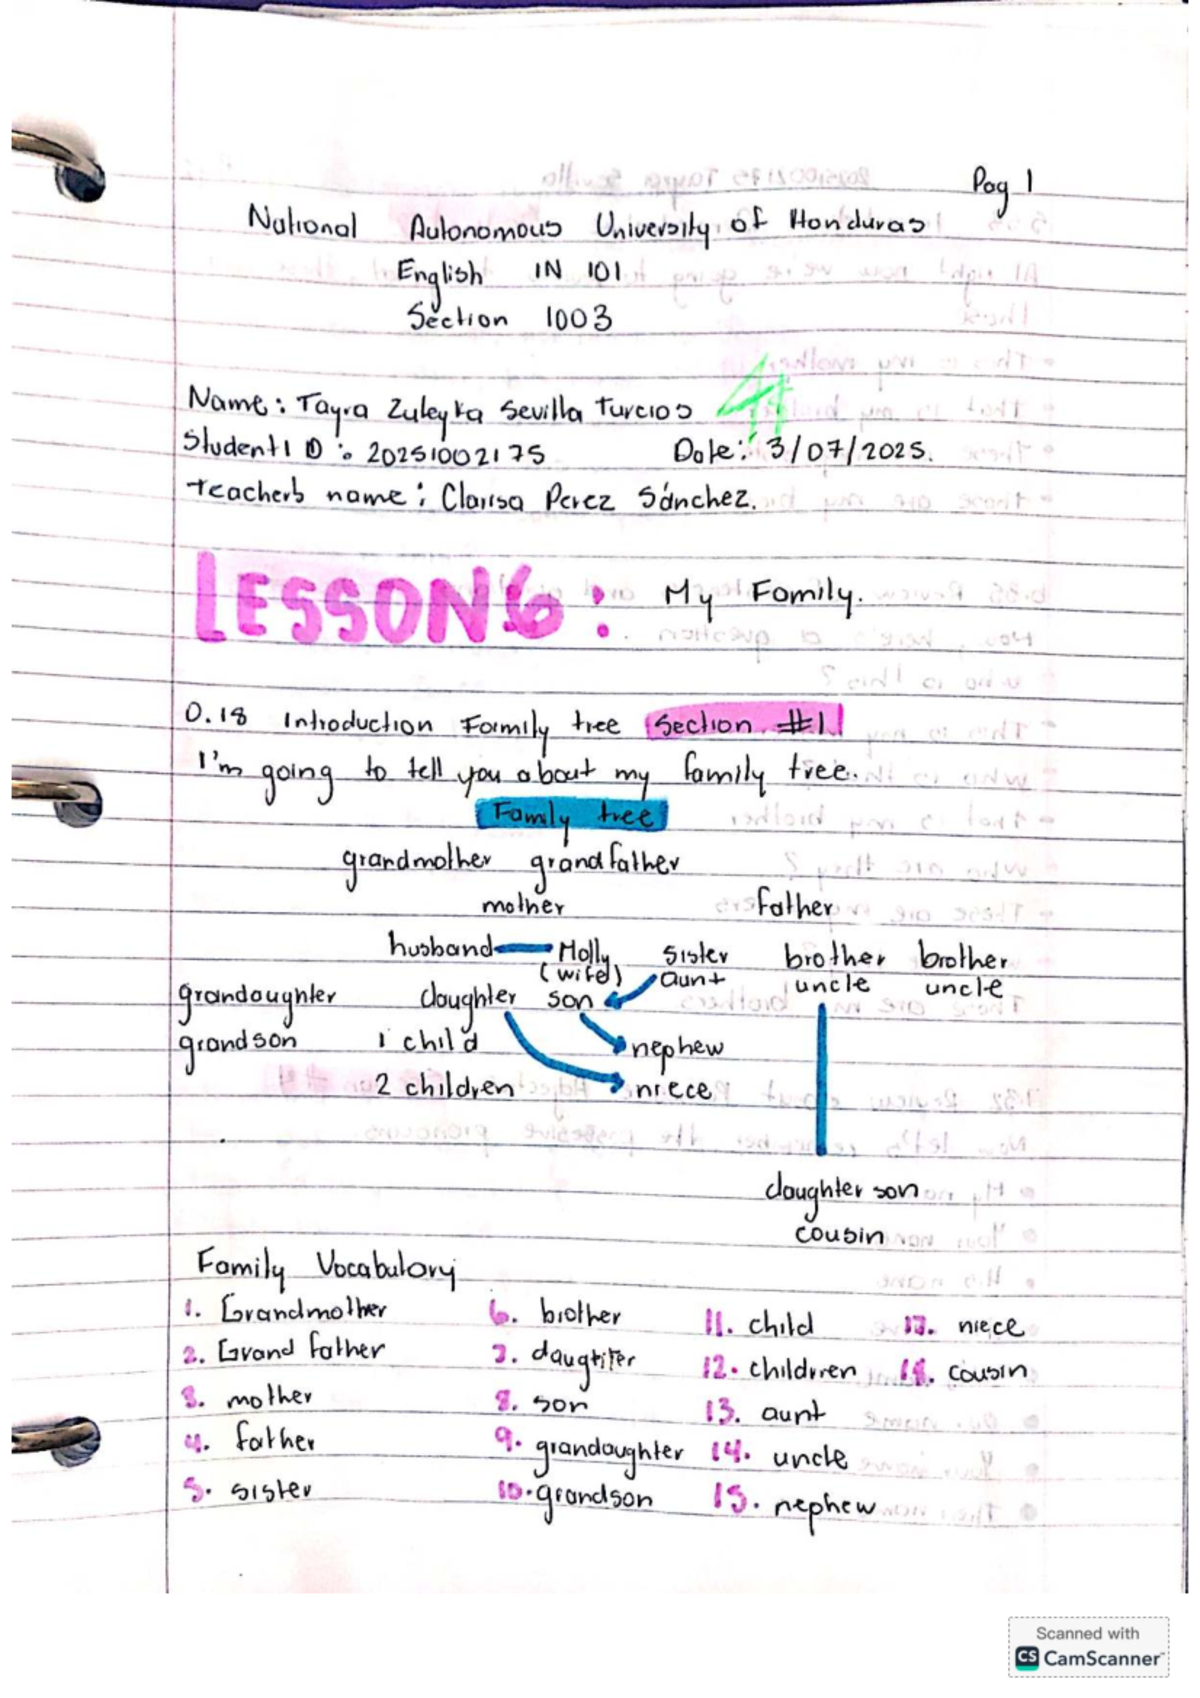 Pag 1
National Autonomous University of Honduras
English IN 101
Section 1003
Name: Tayra Zuleyka Sevilla Turcios
Student ID: 20251002175 Date: 3/07/2025.
Teacher's name: Clarisa Perez Sánchez.
LESSON 6: My Family.
0.18 Introduction Family tree Section #1
I'm going to tell you about my family tree.
Family tree
grandmother grandfather
mother father
husband Molly sister brother brother
(wife) aunt uncle uncle
grandaughter daughter son
grandson 1 child nephew
2 children niece
daughter son
cousin
Family Vocabulary
1. Grandmother 6. brother 11. child 17. niece
2. Grand father 7. daugther 12. children 18. cousin
3. mother 8. son 13. aunt
4. father 9. grandaughter 14. uncle
5. sister 10. grandson 15. nephew
Scanned with
CS CamScanner